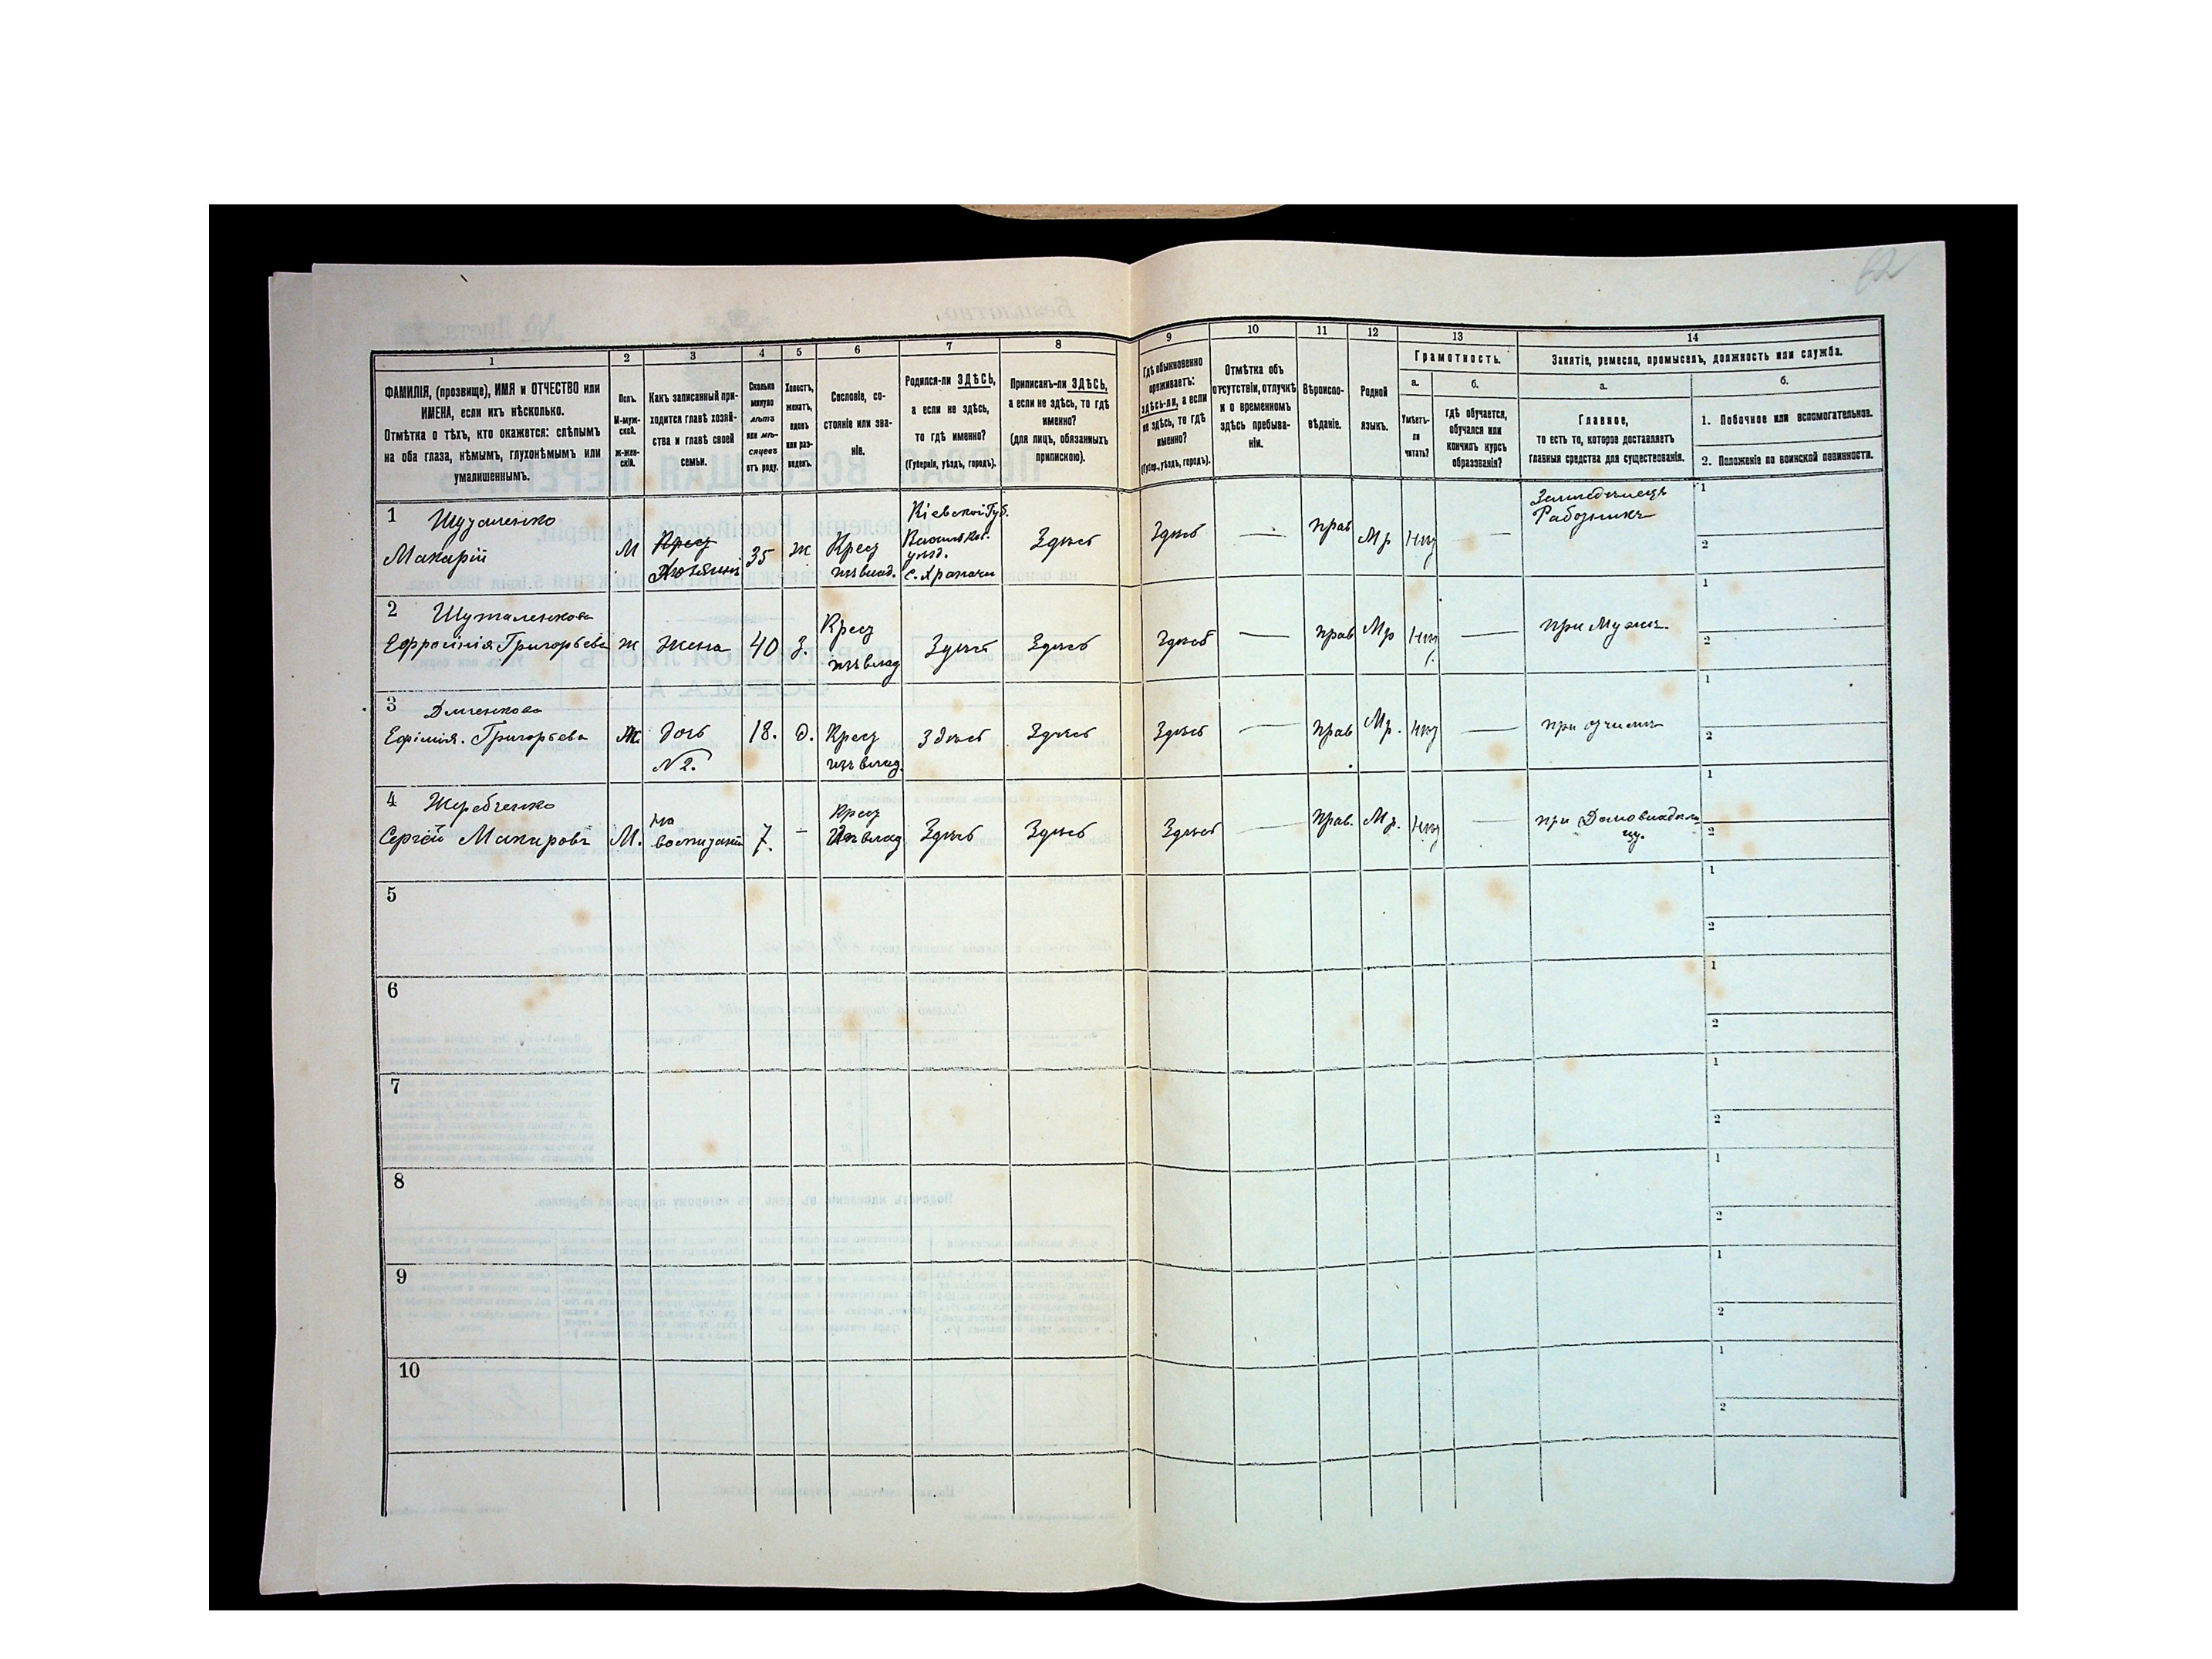 62
1
2
3
4
5
6
7
8
9
10
11
12
13
14
ФАМИЛІЯ, (прозвище), ИМЯ и ОТЧЕСТВО или
ИМЕНА, если ихъ нѣсколько.
Отмѣтка о тѣхъ, кто окажется: слѣпымъ
на оба глаза, нѣмымъ, глухонѣмымъ или
умалишеннымъ.
Полъ.
М-муж-
ской.
ж-жен-
скій.
Какъ записанный при-
ходится главѣ хозяй-
ства и главѣ своей
семьи.
Сколько
минуло
лѣтъ
или мѣ-
сяцевъ
отъ роду.
Холостъ,
женатъ,
вдовъ
или раз-
веденъ.
Сословіе, со-
стояніе или зва-
ніе.
Родился-ли ЗДѢСЬ,
а если не здѣсь,
то гдѣ именно?
(Губернія, уѣздъ, городъ).
Приписанъ-ли ЗДѢСЬ,
а если не здѣсь, то гдѣ
именно?
(для лицъ, обязанныхъ
припискою).
Гдѣ обыкновенно
проживаетъ:
здѣсь-ли, а если
не здѣсь, то гдѣ
именно?
(Губер., уѣздъ, городъ).
Отмѣтка объ
отсутствіи, отлучкѣ
и о временномъ
здѣсь пребыва-
ніи.
Вѣроиспо-
вѣданіе.
Родной
языкъ.
Грамотность.
а.
Умѣетъ-
ли
читать?
б.
гдѣ обучается,
обучался или
кончилъ курсъ
образованія?
Занятіе, ремесло, промыселъ, должность или служба.
а.
Главное,
то есть то, которое доставляетъ
главныя средства для существованія.
б.
1. Побочное или вспомогательное.
2. Положеніе по воинской повинности.
1
Макарій
М
Крест
35
ж
Крест
изъ влад.
Кіевской Губ.
уезд.
Здѣсь
Здѣсь
—
прав
Мр
нѣт
—
Земледѣлецъ
Работникъ
1
2
2
Шуталенкова
Ефросинія Григорьева
ж
Жена
40
З.
Крест
изъ влад
Здѣсь
Здѣсь
Здѣсь
—
прав
Мр
нѣт
—
при Мужѣ.
1
2
3
Ефімія. Григорьева
Ж.
дочь
№ 2.
18.
д.
Крест
изъ влад.
Здѣсь
Здѣсь
Здѣсь
—
прав
Мр.
нѣт
—
при отчимѣ
1
2
4
Жеребченко
Сергѣй Макаровъ
М.
на
7.
–
Крест
Изъ влад
Здѣсь
Здѣсь
Здѣсь
—
Прав.
Мр.
нѣт
—
при Домовладѣль
цу.
1
2
5
1
2
6
1
2
7
1
2
8
1
2
9
1
2
10
1
2